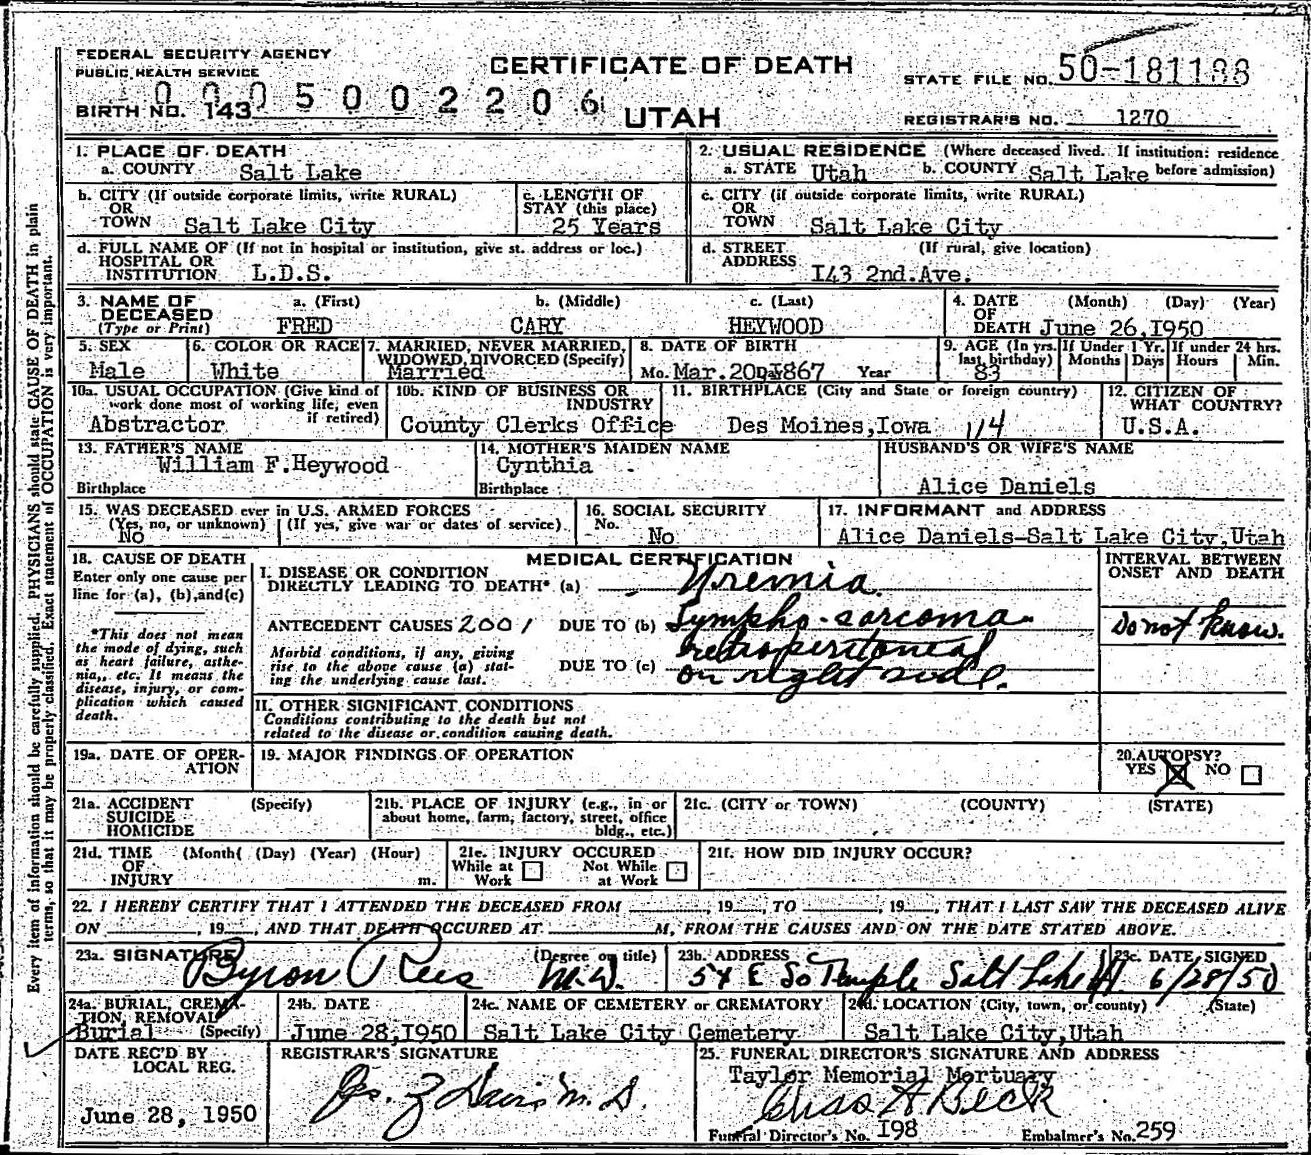 FEDERAL SECURITY AGENCY
PUBLIC HEALTH SERVICE
CERTIFICATE OF DEATH
STATE FILE NO. 50-181188
0005002206
BIRTH NO. 143
UTAH
REGISTRAR'S NO. 1270
1. PLACE OF DEATH
a. COUNTY Salt Lake
2. USUAL RESIDENCE (Where deceased lived. If institution: residence before admission)
a. STATE Utah b. COUNTY Salt Lake
b. CITY (If outside corporate limits, write RURAL)
OR
TOWN Salt Lake City
c. LENGTH OF
STAY (this place)
25 Years
c. CITY (If outside corporate limits, write RURAL)
OR
TOWN Salt Lake City
d. FULL NAME OF (If not in hospital or institution, give st. address or loc.)
HOSPITAL OR
INSTITUTION L.D.S.
d. STREET (If rural, give location)
ADDRESS I43 2nd.Ave.
3. NAME OF
DECEASED
(Type or Print)
a. (First) b. (Middle) c. (Last)
FRED CARY HEYWOOD
4. DATE (Month) (Day) (Year)
OF
DEATH June 26,I950
5. SEX
Male
6. COLOR OR RACE
White
7. MARRIED, NEVER MARRIED,
WIDOWED, DIVORCED (Specify)
Married
8. DATE OF BIRTH
Mo. Mar.20 I867 Year
9. AGE (In yrs.
last birthday)
83
If Under 1 Yr.
Months Days
If under 24 hrs.
Hours Min.
10a. USUAL OCCUPATION (Give kind of
work done most of working life, even
if retired)
Abstractor
10b. KIND OF BUSINESS OR
INDUSTRY
County Clerks Office
11. BIRTHPLACE (City and State or foreign country)
Des Moines,Iowa 114
12. CITIZEN OF
WHAT COUNTRY?
U.S.A.
13. FATHER'S NAME
William F.Heywood
Birthplace
14. MOTHER'S MAIDEN NAME
Cynthia
Birthplace
HUSBAND'S OR WIFE'S NAME
Alice Daniels
15. WAS DECEASED ever in U.S. ARMED FORCES
(Yes, no, or unknown) (If yes, give war or dates of service)
No
16. SOCIAL SECURITY
No.
No
17. INFORMANT and ADDRESS
Alice Daniels-Salt Lake City,Utah
18. CAUSE OF DEATH
Enter only one cause per
line for (a), (b),and(c)
*This does not mean
the mode of dying, such
as heart failure, asthe-
nia,, etc. It means the
disease, injury, or com-
plication which caused
death.
MEDICAL CERTIFICATION
I. DISEASE OR CONDITION
DIRECTLY LEADING TO DEATH* (a) Uremia
ANTECEDENT CAUSES 2001 DUE TO (b) Lympho-sarcoma
Morbid conditions, if any, giving
rise to the above cause (a) stat-
ing the underlying cause last.
DUE TO (c) retroperitoneal
on right side.
INTERVAL BETWEEN
ONSET AND DEATH
Do not know.
II. OTHER SIGNIFICANT CONDITIONS
Conditions contributing to the death but not
related to the disease or condition causing death.
19a. DATE OF OPER-
ATION
19. MAJOR FINDINGS OF OPERATION
20. AUTOPSY?
YES X NO
21a. ACCIDENT (Specify)
SUICIDE
HOMICIDE
21b. PLACE OF INJURY (e.g., in or
about home, farm, factory, street, office
bldg., etc.)
21c. (CITY or TOWN) (COUNTY) (STATE)
21d. TIME (Month( (Day) (Year) (Hour)
OF
INJURY m.
21e. INJURY OCCURED
While at Work Not While at Work
21f. HOW DID INJURY OCCUR?
22. I HEREBY CERTIFY THAT I ATTENDED THE DECEASED FROM , 19 , TO , 19 , THAT I LAST SAW THE DECEASED ALIVE
ON , 19 , AND THAT DEATH OCCURED AT M, FROM THE CAUSES AND ON THE DATE STATED ABOVE.
23a. SIGNATURE (Degree or title)
Byron Rees M.D.
23b. ADDRESS
54 E So Temple Salt Lake
23c. DATE SIGNED
6/28/50
24a. BURIAL, CREMA-
TION, REMOVAL
Burial (Specify)
24b. DATE
June 28,I950
24c. NAME OF CEMETERY or CREMATORY
Salt Lake City Cemetery
24d. LOCATION (City, town, or county) (State)
Salt Lake City,Utah
DATE REC'D BY
LOCAL REG.
June 28, 1950
REGISTRAR'S SIGNATURE
25. FUNERAL DIRECTOR'S SIGNATURE AND ADDRESS
Taylor Memorial Mortuary
Chas A Beck
Funeral Director's No. I98 Embalmer's No. 259
Every item of information should be carefully supplied. PHYSICIANS should state CAUSE OF DEATH in plain
terms, so that it may be properly classified. Exact statement of OCCUPATION is very important.